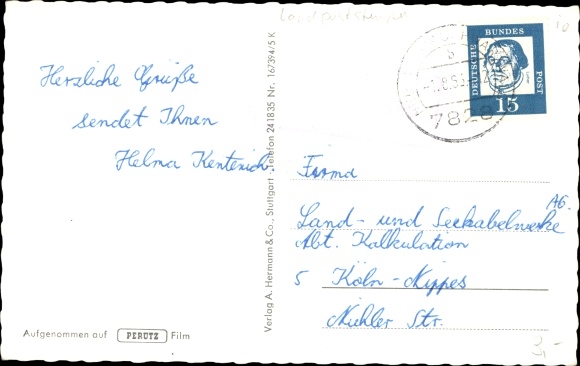 Landpoststempel
Herzliche Grüße
sendet Ihnen
Helma Kentenich
Aufgenommen auf PERUTZ Film
Verlag A. Hermann & Co., Stuttgart · Telefon 241835 Nr. 167394/5 K
DEUTSCHE BUNDES POST
15
7828
Firma
Land- und Seekabelwerke AG.
Abt. Kalkulation
5 Köln-Nippes
Niehler Str.